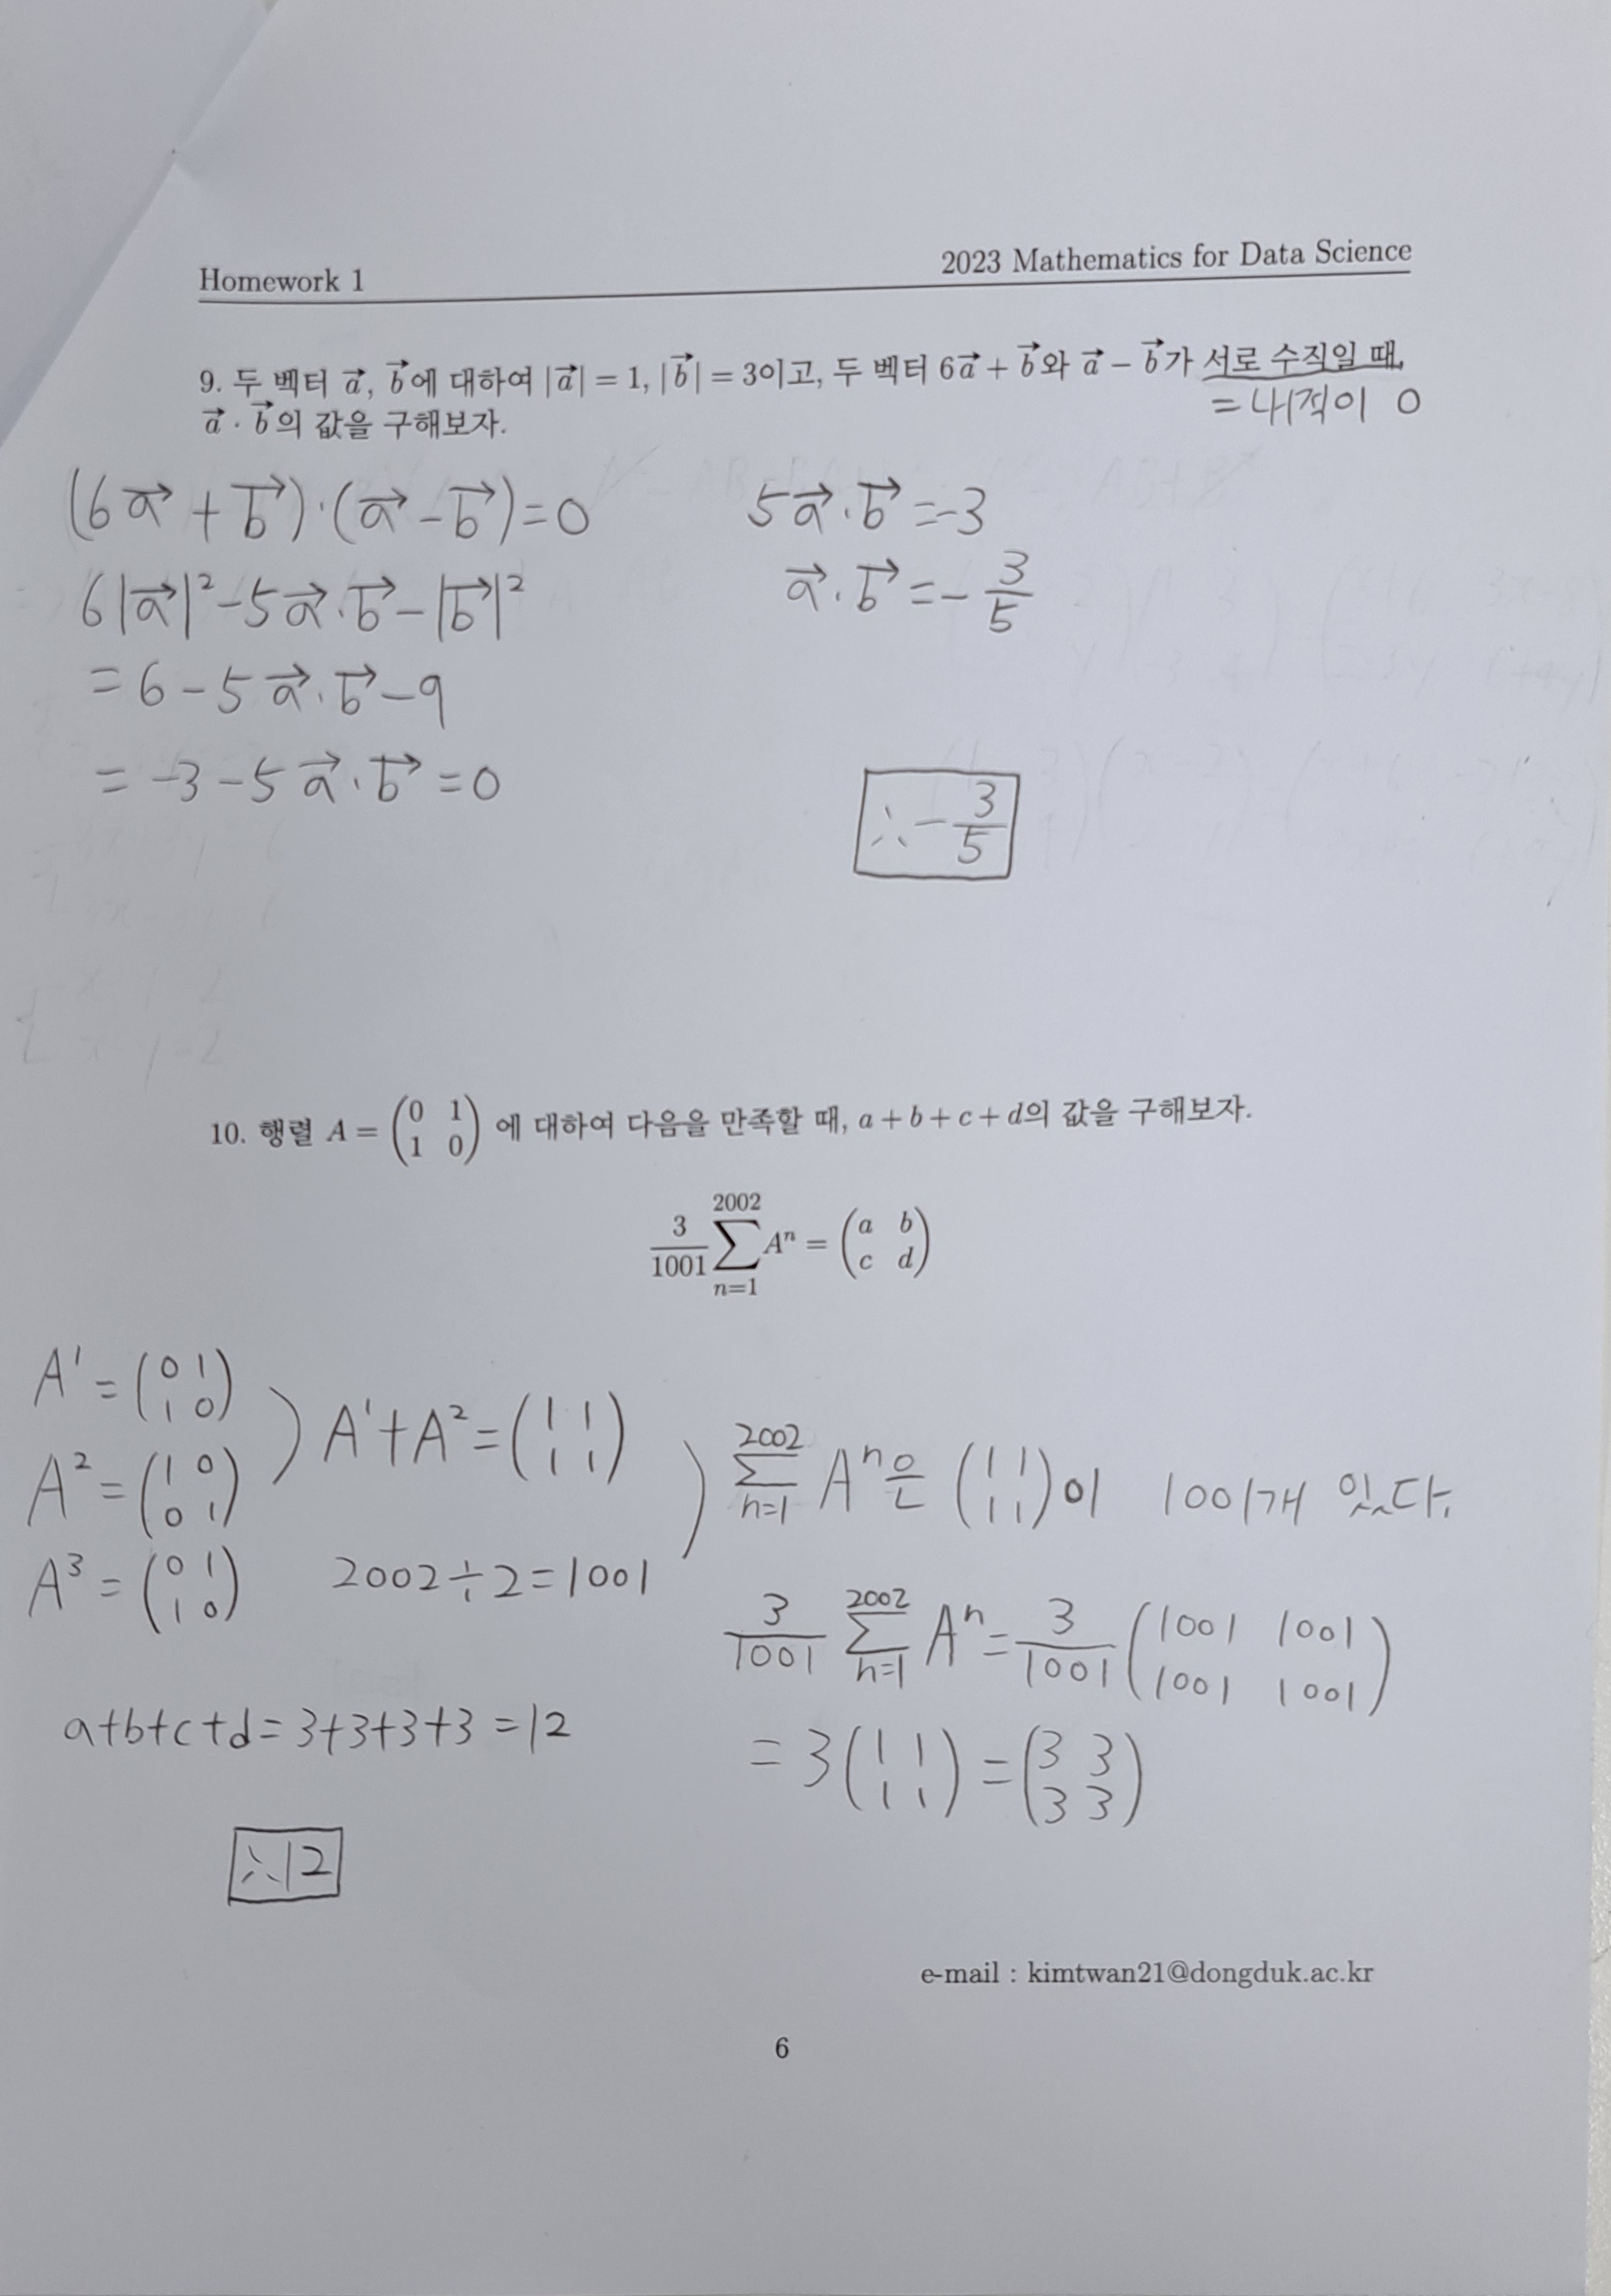 Homework 1
2023 Mathematics for Data Science
9. 두 벡터 a⃗, b⃗에 대하여 |a⃗| = 1, |b⃗| = 3이고, 두 벡터 6a⃗ + b⃗와 a⃗ − b⃗가 서로 수직일 때,
= 내적이 0
a⃗ · b⃗의 값을 구해보자.
(6a⃗ + b⃗)·(a⃗ − b⃗) = 0
6|a⃗|² − 5a⃗·b⃗ − |b⃗|²
= 6 − 5a⃗·b⃗ − 9
= −3 − 5a⃗·b⃗ = 0
5a⃗·b⃗ = −3
a⃗·b⃗ = − 3/5
∴ − 3/5
10. 행렬 A = (0 1 / 1 0) 에 대하여 다음을 만족할 때, a + b + c + d의 값을 구해보자.
3/1001 ∑_{n=1}^{2002} Aⁿ = (a b / c d)
A¹ = (0 1 / 1 0)
A² = (1 0 / 0 1)
A³ = (0 1 / 1 0)
) A¹ + A² = (1 1 / 1 1)
2002 ÷ 2 = 1001
) ∑_{n=1}^{2002} Aⁿ은 (1 1 / 1 1)이 1001개 있다.
3/1001 ∑_{n=1}^{2002} Aⁿ = 3/1001 (1001 1001 / 1001 1001)
= 3(1 1 / 1 1) = (3 3 / 3 3)
a+b+c+d = 3+3+3+3 = 12
∴ 12
e-mail : kimtwan21@dongduk.ac.kr
6